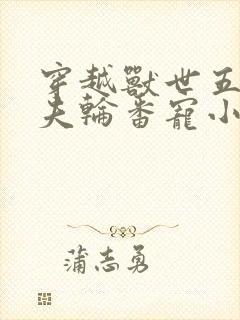 穿越獸世五
夫輪番寵小
蒲志勇